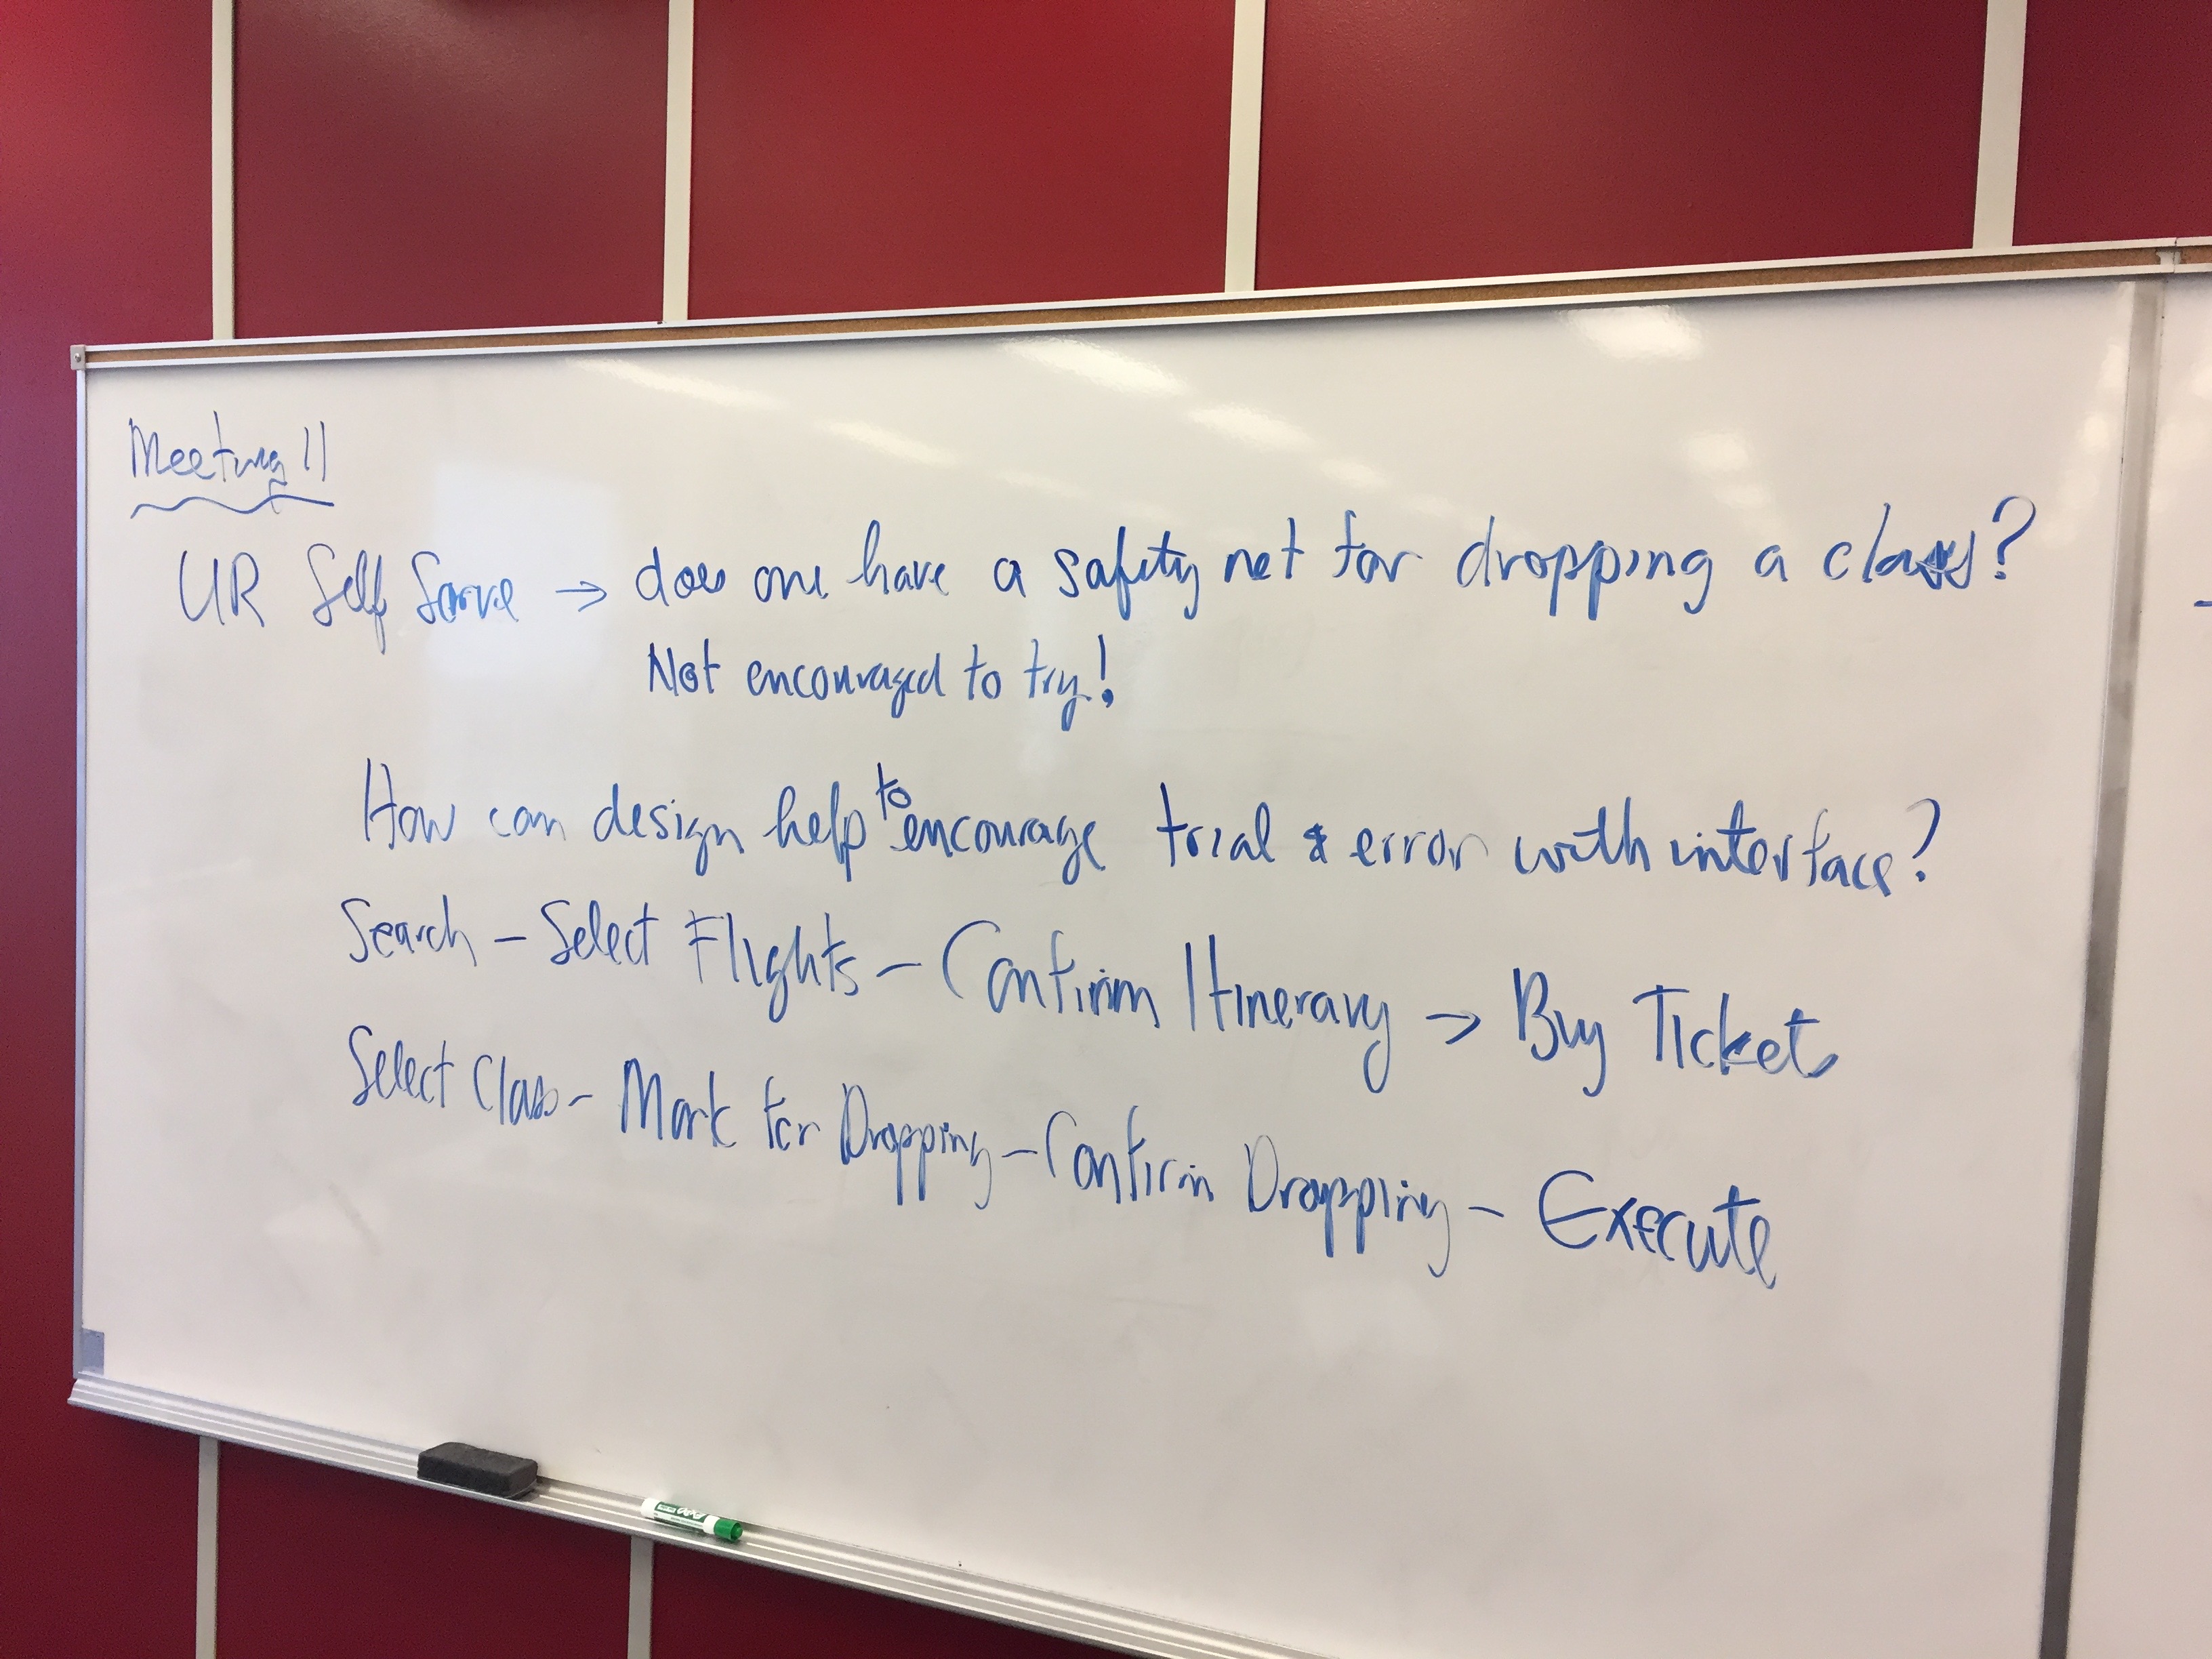 Meeting 11
UR Self Serve → does one have a safety net for dropping a class?
Not encouraged to try!
How can design help to encourage trial & error with interface?
Search – Select Flights – Confirm Itinerary → Buy Ticket
Select Class – Mark for Dropping – Confirm Dropping – Execute
EXPO